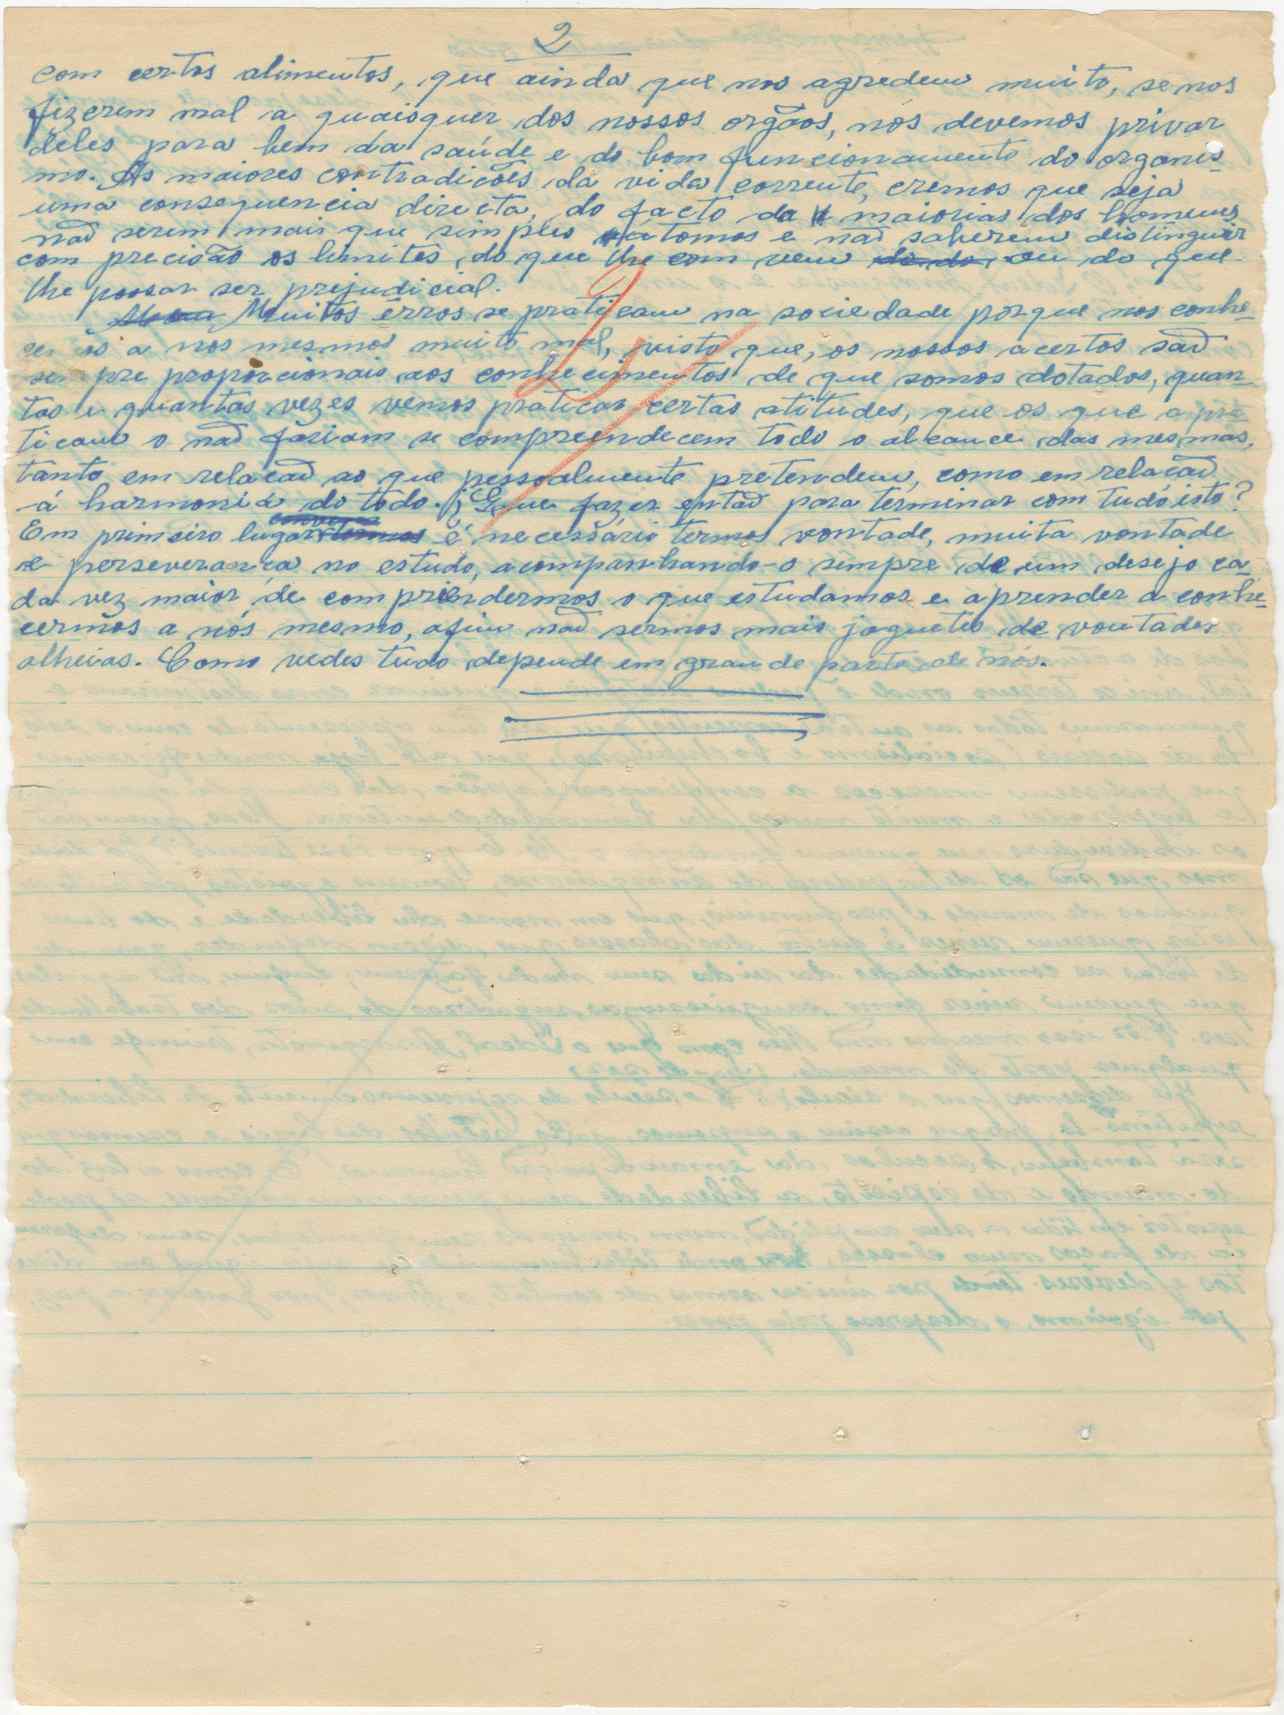 2
com certos alimentos, que ainda que nos agredem muito, se nos
fizerem mal a quaisquer dos nossos orgãos, nós devemos privar
dêles para bem da saúde e do bom funcionamento do organis-
mo. As maiores contradições da vida corrente, cremos que seja
uma consequencia directa, do facto da maiorias dos homens
não serem mais que simples atomos e não saberem distinguir
com precisão os limites do que lhe com vem ou do que
lhe possar ser prejudicial.
Muitos êrros se praticam na sociedade porque nos conhe-
cemos a nos mesmos muito mal, visto que, os nossos acertos são
sempre proporcionais aos conhecimentos de que somos dotados, quan-
tas e quantas vezes vemos praticar certas atitudes, que os que a pra-
ticam o não fariam se compreendecem todo o alcance das mesmas,
tanto em relação ao que pessoalmente pretendem, como em relação
á harmonia do todo. ¿E que fazer então para terminar com tudo isto?
Em primeiro lugar é necessário termos vontade, muita vontade
e perseverança no estudo, acompanhando-o sempre de um desejo ca-
da vez maior de compriendermos o que estudamos e aprender a conhe-
cermos a nós mesmo, afim não sermos mais joguetes de vontades
alheias. Como vedes tudo depende em grande parte de nós.